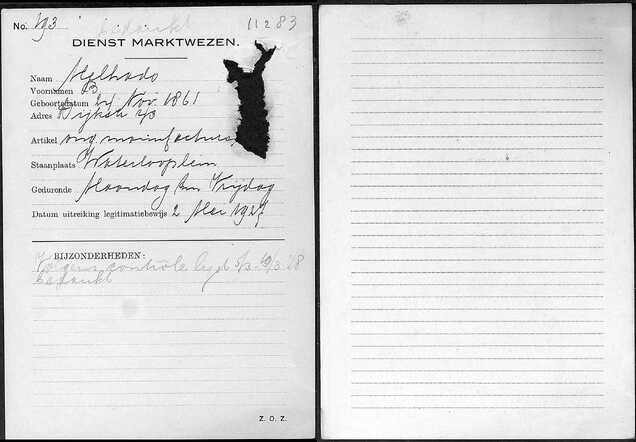 No. 193 bedankt 11283
DIENST MARKTWEZEN.
Naam Melhado
Voornamen B
Geboortedatum 24 Nov. 1861
Adres Dijkstr
Artikel ong. manufacturen
Staanplaats Waterlooplein
Gedurende Maandag t/m Vrijdag
Datum uitreiking legitimatiebewijs 2 Mei 1927
BIJZONDERHEDEN:
Volgens contrôle lijst 5/3-10/3 '28
bedankt
Z. O. Z.